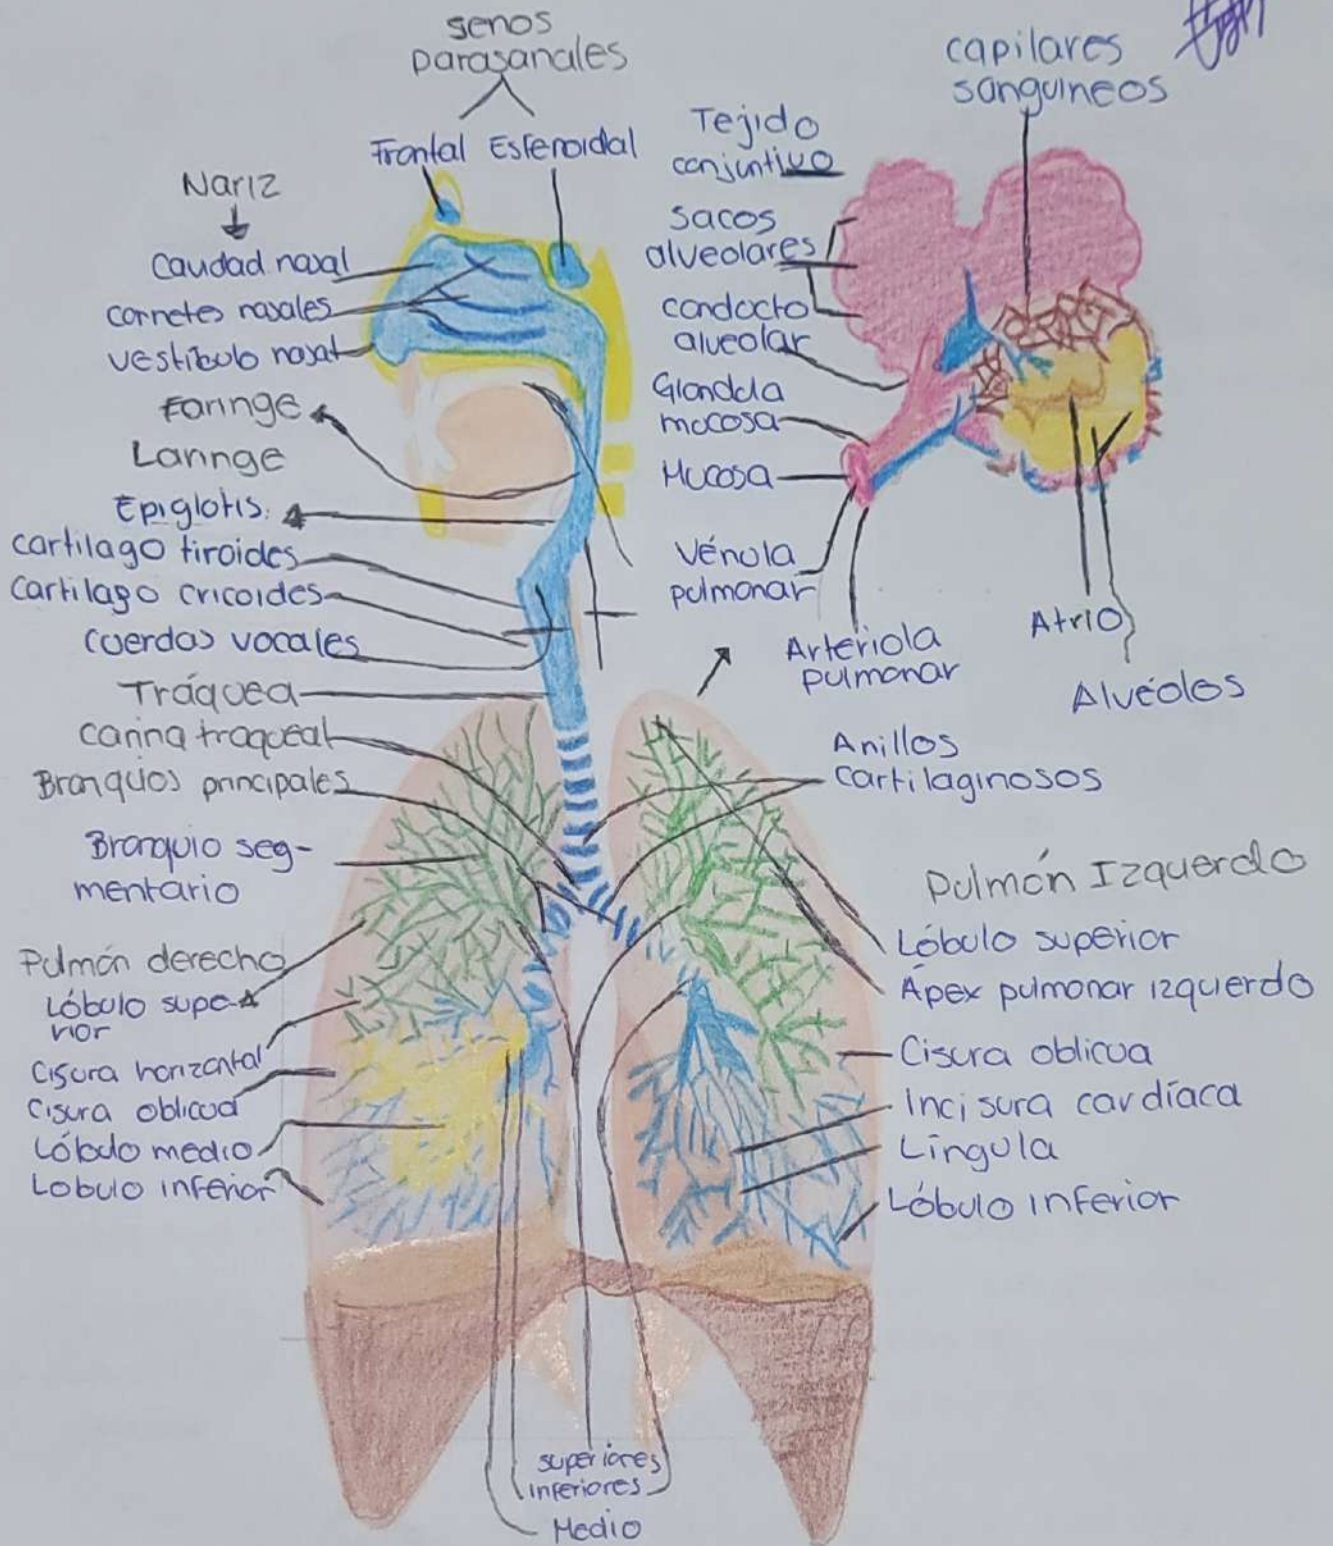 senos
parasanales
Frontal Esfenoidal
Nariz
Caudad nasal
cornetes nasales
vestíbulo nasal
Faringe
Laringe
Epiglotis.
cartilago tiroides
Cartilago cricoides
cuerdas vocales
Tráquea
carina traqueal
Bronquios principales
Bronquio seg-
mentario
Pulmón derecho
Lóbulo supe-
rior
Cisura horizontal
Cisura oblicua
Lóbulo medio
Lobulo inferior
capilares
sanguineos
Tejido
conjuntivo
sacos
alveolares
conducto
alveolar
Glandula
mucosa
Mucosa
Vénula
pulmonar
Arteriola
pulmonar
Atrio
Alvéolos
Anillos
cartilaginosos
Pulmón Izquerdo
Lóbulo superior
Ápex pulmonar izquierdo
Cisura oblicua
Incisura cardíaca
Língula
Lóbulo inferior
superiores
inferiores
Medio